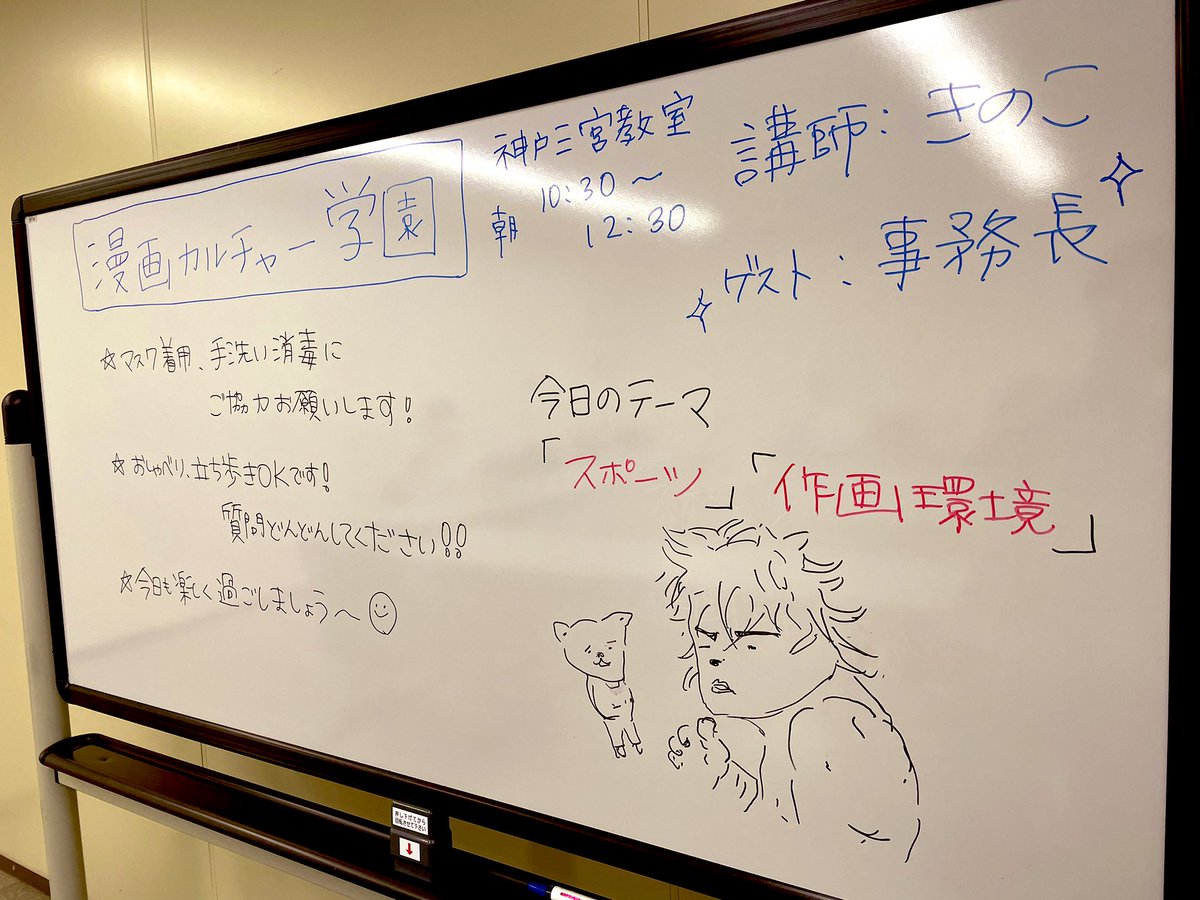 漫画カルチャー学園
神戸三宮教室
朝 10:30〜
12:30
講師：きのこ
ゲスト：事務長
☆マスク着用、手洗い消毒に
ご協力お願いします!
☆おしゃべり、立ち歩きOKです!
質問どんどんしてください!!
☆今日も楽しく過ごしましょう〜
今日のテーマ
「スポーツ」「作画環境」
押し下げてから
回転させて下さい